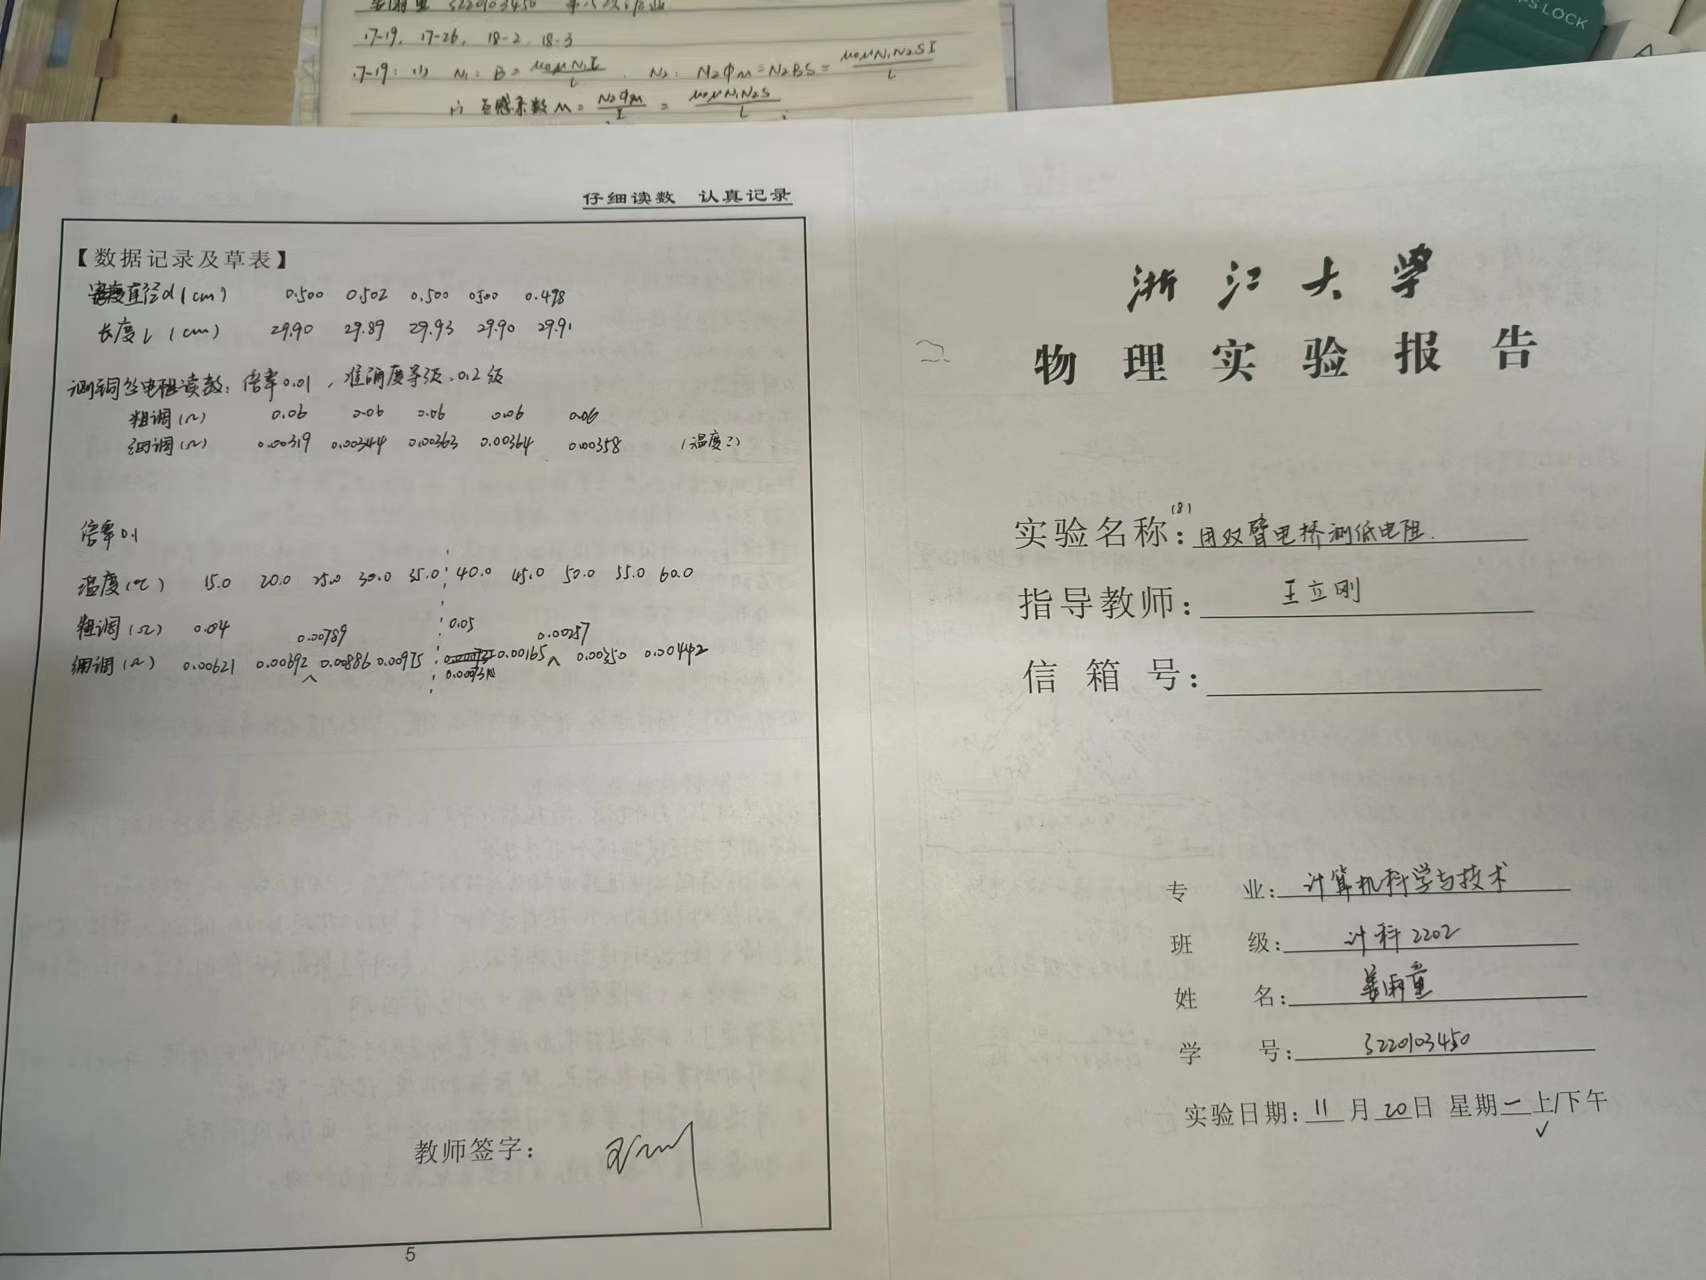 3220103450 第八次作业
17-19, 17-26, 18-2, 18-3
17-19: (1) N₁: B = μ₀μN₁I/L , N₂: N₂φm = N₂BS = μ₀μN₁N₂SI/L
∴ 互感系数M = N₂φm/I = μ₀μN₁N₂S/L ;
PS LOCK
仔细读数 认真记录
【数据记录及草表】
直径d(cm) 0.500 0.502 0.500 0.500 0.498
长度L (cm) 29.90 29.89 29.93 29.90 29.91
测铜丝电阻读数: 倍率0.01 , 准确度等级:0.2级
粗调(Ω) 0.06 0.06 0.06 0.06 0.06
细调(Ω) 0.00319 0.00344 0.00363 0.00364 0.00358 (温度?)
倍率0.1
温度(℃) 15.0 20.0 25.0 30.0 35.0 40.0 45.0 50.0 55.0 60.0
粗调(Ω) 0.04 0.05
0.00789 0.00257
细调(Ω) 0.00621 0.00692 ^ 0.00886 0.00975 0.00165 ^ 0.00350 0.00442
教师签字:
5
浙江大学
物理实验报告
(8)
实验名称: 用双臂电桥测低电阻.
指导教师: 王立刚
信箱号:
专业: 计算机科学与技术
班级: 计科2202
姓名: 姜雨童
学号: 3220103450
实验日期: 11 月 20 日 星期 一 上/下午
✓